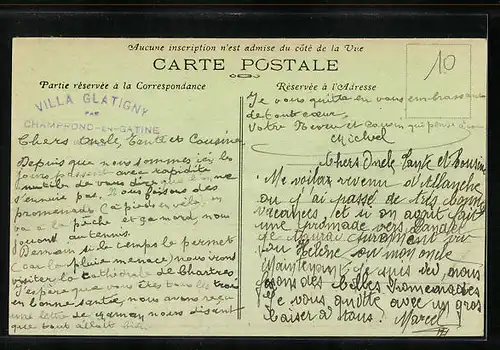 Aucune inscription n'est admise du côté de la Vue
CARTE POSTALE
Partie réservée à la Correspondance
Réservée à l'Adresse
10
VILLA GLATIGNY
PAR
CHAMPROND-EN-GATINE
Chers Oncle, Tante et Cousine
Depuis que nous sommes ici les
jours passent avec rapidité
inutile de vous dire que l'on ne
s'ennuie pas. Nous faisons des
promenades (à pieds en vélo), on
va à la pêche et nous
jouons au tennis.
Demain si le temps le permet
(car la pluie menace) nous irons
visiter la Cathédrale de Chartres.
J'espère que vous êtes tous les trois
en bonne santé, nous avons reçu
une lettre de maman nous disant
que tout allait bien.
Je vous quitte en vous embrassant
de tout cœur.
Votre neveu et cousin qui pense à vous
Michel
Chers Oncle Tante et Cousine
Me voilà revenu d'Allanche
où j'ai passé de très bonnes
vacances, et si on avait fait
une promenade vers
je aurai sûrement vu
ou Hélène ou mon oncle
Maintenant je suis ici, nous
faisons des belles promenades
Je vous quitte avec un gros
baiser à tous. Marcel